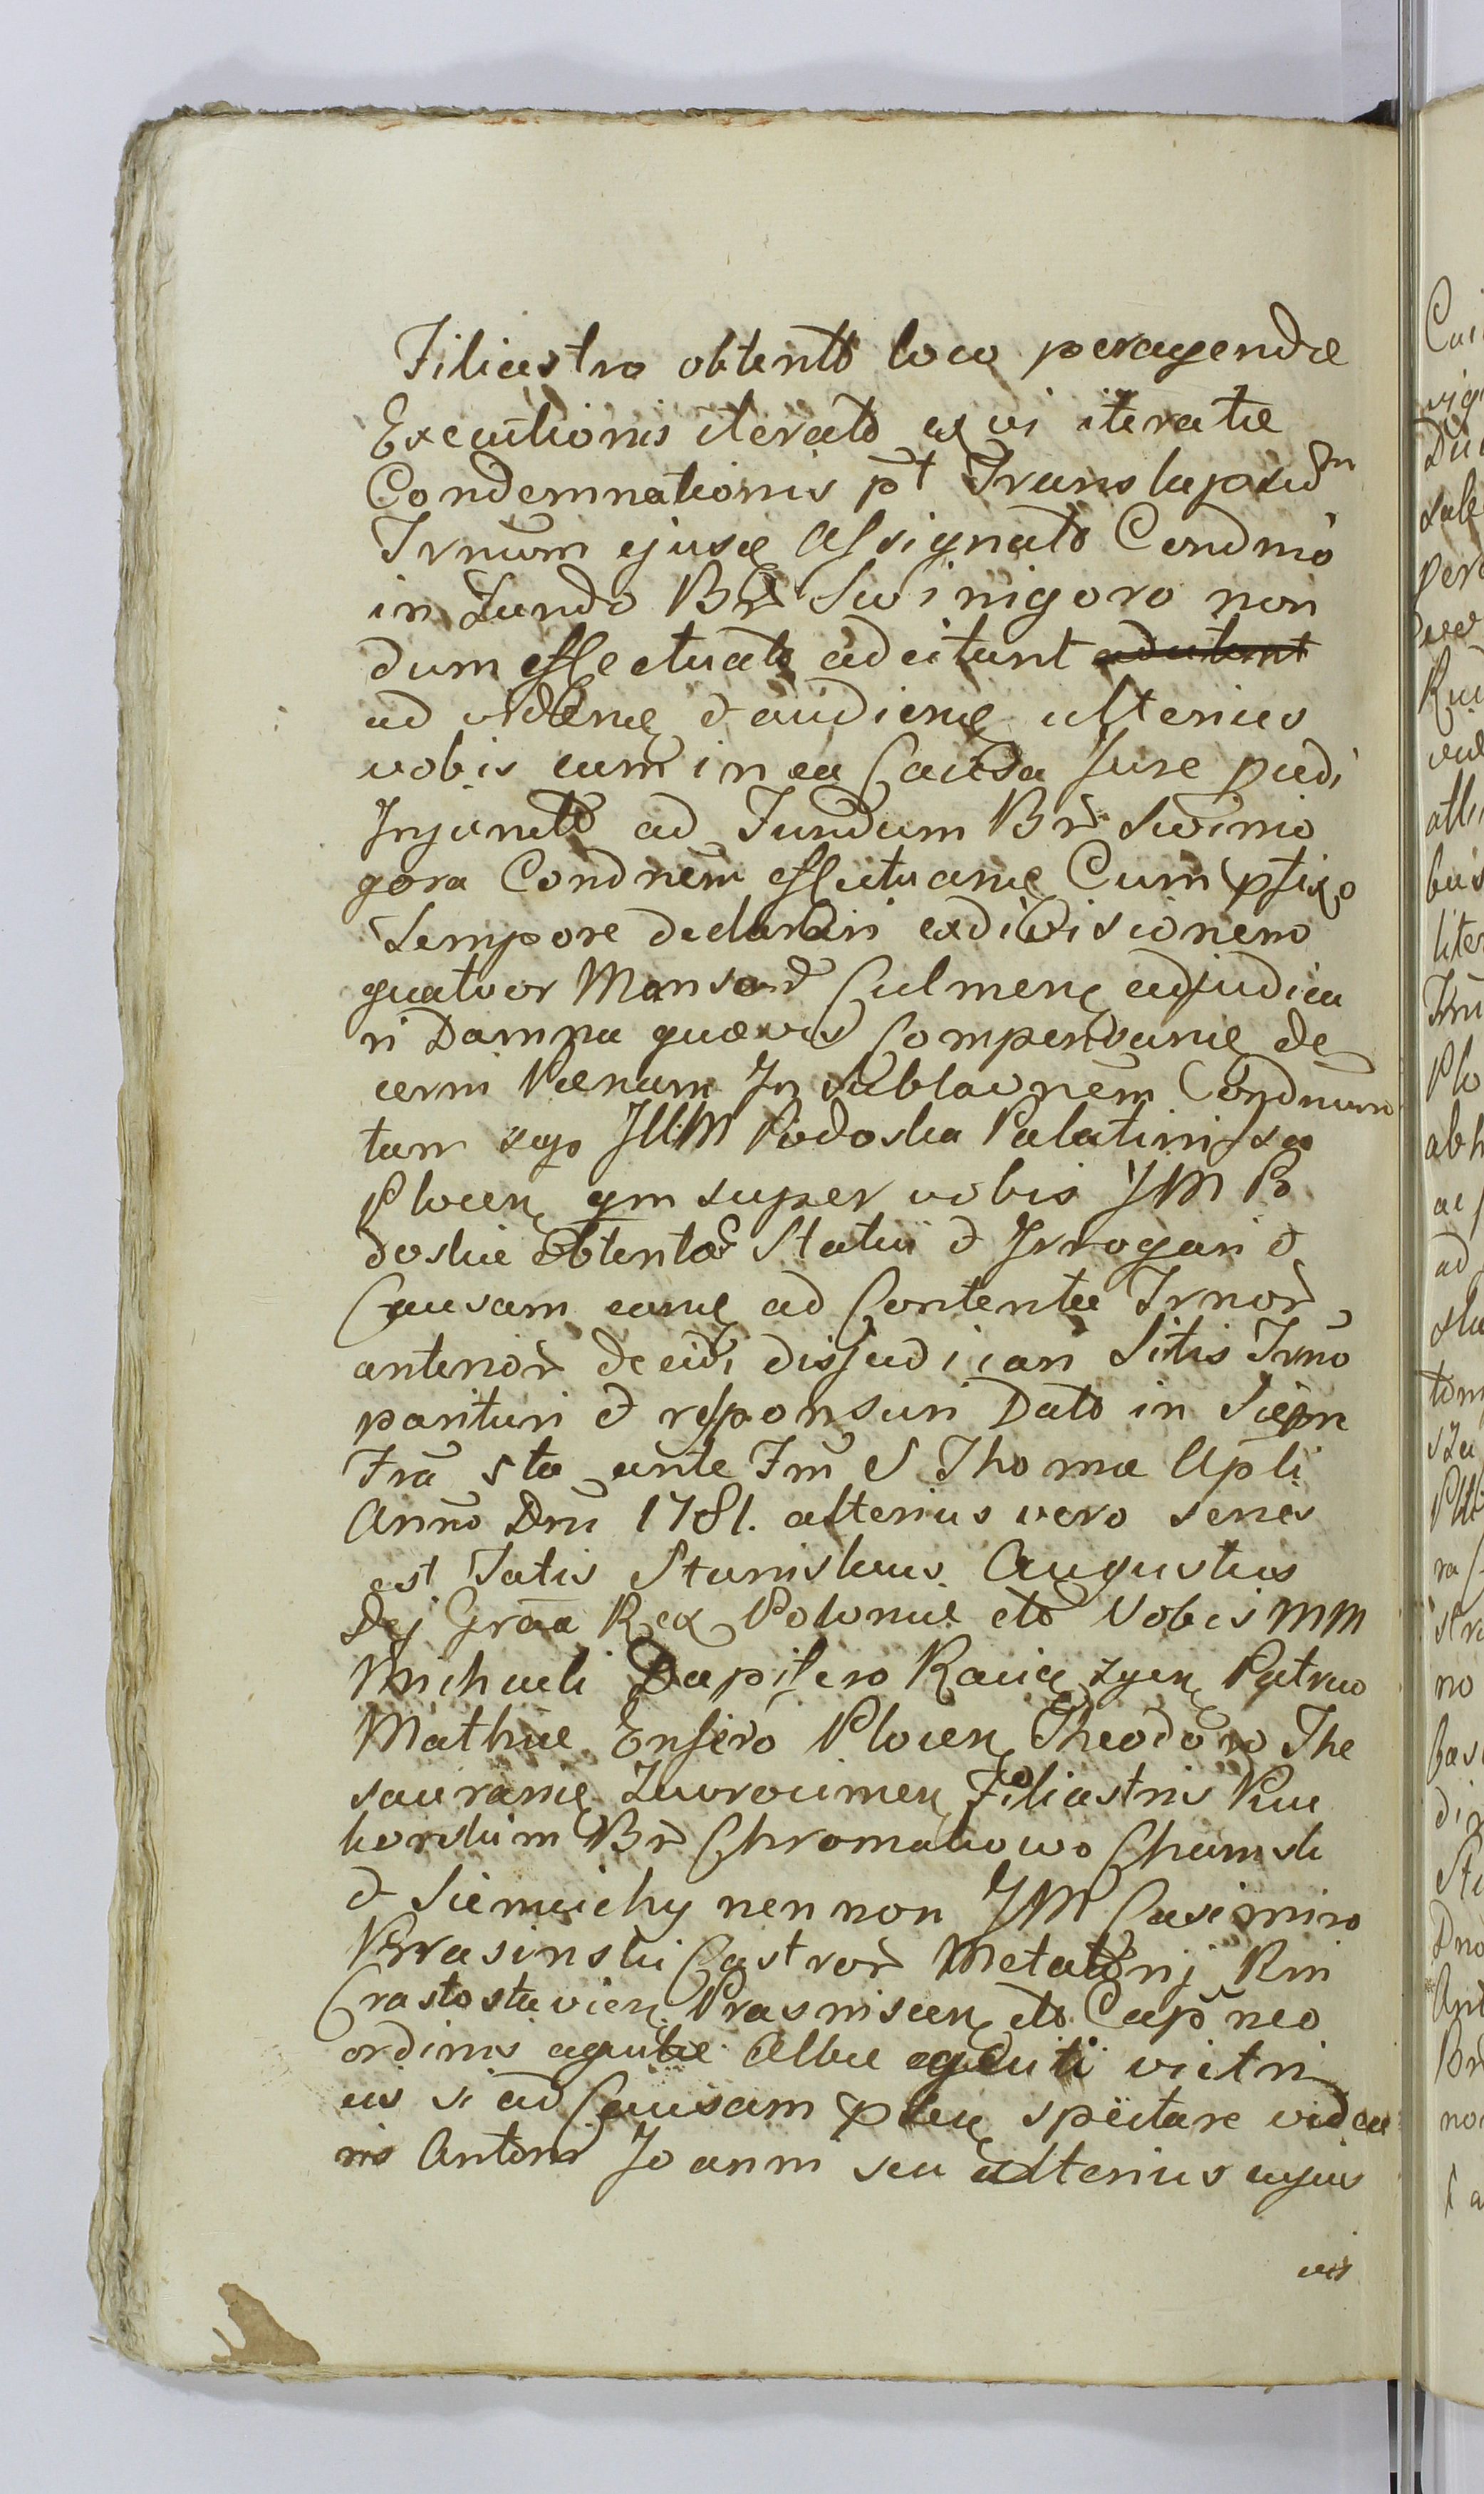 Filiastro obtento loco peragendæ
Executionis iterato ex vi iteratæ
Condemnationis pt Translapsu
Trnum ejusq assignato Condnio
in Fundo Br Swinigoro non
dum effectuato adcitant adcitant
ad videnq & audienq ulterius
vobis cum in ea Causa Jure pudi
Injuncto ad Fundum Br Swinio
gora Condnem effectuanq Cum pfixo
Tempore declarari exdivisionem
quatvor Mansor Culmenq adjudica
ri Damna quævis Compensanq de
cerni Pænam In sublaonem Condnum
tam sup JllM Podoska Palatini
Plocenq qm super vobis JM Po
doskie obtentor Statui & Irrogari &
Causam eanq ad Contenta Trnor
anterior decidi disjudicari Sitis Trno
parituri & responsuri Dato in Siepr
Fra 5ta ante Fm S Thomæ Apli
Anno Dni 1781. alterius vero series
est Talis Stanislaus Augustus
Dej Graa Rex Poloniæ etc Vobis MM
Michaeli Dapifero Raviq Patruo
Mathiæ Ensifero Plocenq Theodoro The
saurariq Zawrocimenq Filiastris Ru
Br Chromakowo Chamsk
& Siemiichy nec non JM Casimiro
Krasinski Castror Metatorij Rni
Crastostavienq Prasnicenq etc Capneo
ordinis aquilæ Albæ equiti victri
cis si ad Causam psenq spectare vide
ris Antono Joanni seu alterius cujus
vis